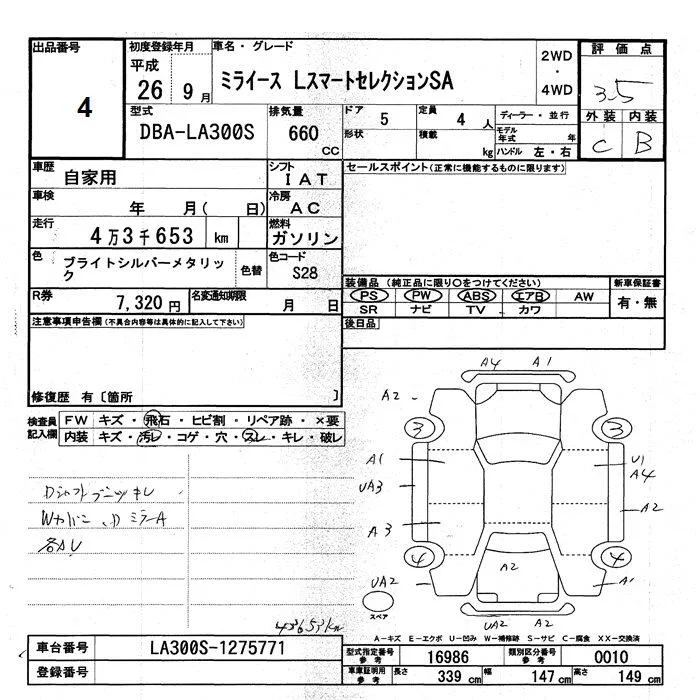 出品番号
4
初度登録年月
平成
26 9 月
車名・グレード
ミライース LスマートセレクションSA
2WD
・
4WD
評価点
3.5
外装 内装
C B
型式
DBA-LA300S
排気量
660
CC
ドア 5
形状
定員 4 人
積載 kg
ディーラー・並行
モデル年式 年
ハンドル 左・右
車歴
自家用
シフト
IAT
車検
年 月( 日)
冷房
AC
走行
4万3千653 km
燃料
ガソリン
色
ブライトシルバーメタリック
色替
色コード
S28
R券
7,320 円
名変通知期限
月 日
セールスポイント(正常に機能するものに限ります)
装備品(純正品に限り○をつけてください)
PS PW ABS エアB AW
SR ナビ TV カワ
新車保証書
有・無
後日品
注意事項申告欄(不具合内容等は具体的に記入して下さい)
修復歴 有〔箇所 〕
検査員
記入欄
FW キズ・飛石・ヒビ割・リペア跡・×要
内装 キズ・汚レ・コゲ・穴・スレ・キレ・破レ
Dシャフトブーツキレ
Wカバー、DミラーA
各AU
43653km
A4 A1
A2
3 3
A1
U1
A4
UA3
A2
A3
4 4
A2
UA2
A1
スペア
UA2 A2
A-キズ E-エクボ U-凹み W-補修跡 S-サビ C-腐食 XX-交換済
車台番号
LA300S-1275771
登録番号
型式指定番号
参考
16986
類別区分番号
参考
0010
車庫証明用
参考
長さ 339 cm
幅 147 cm
高さ 149 cm